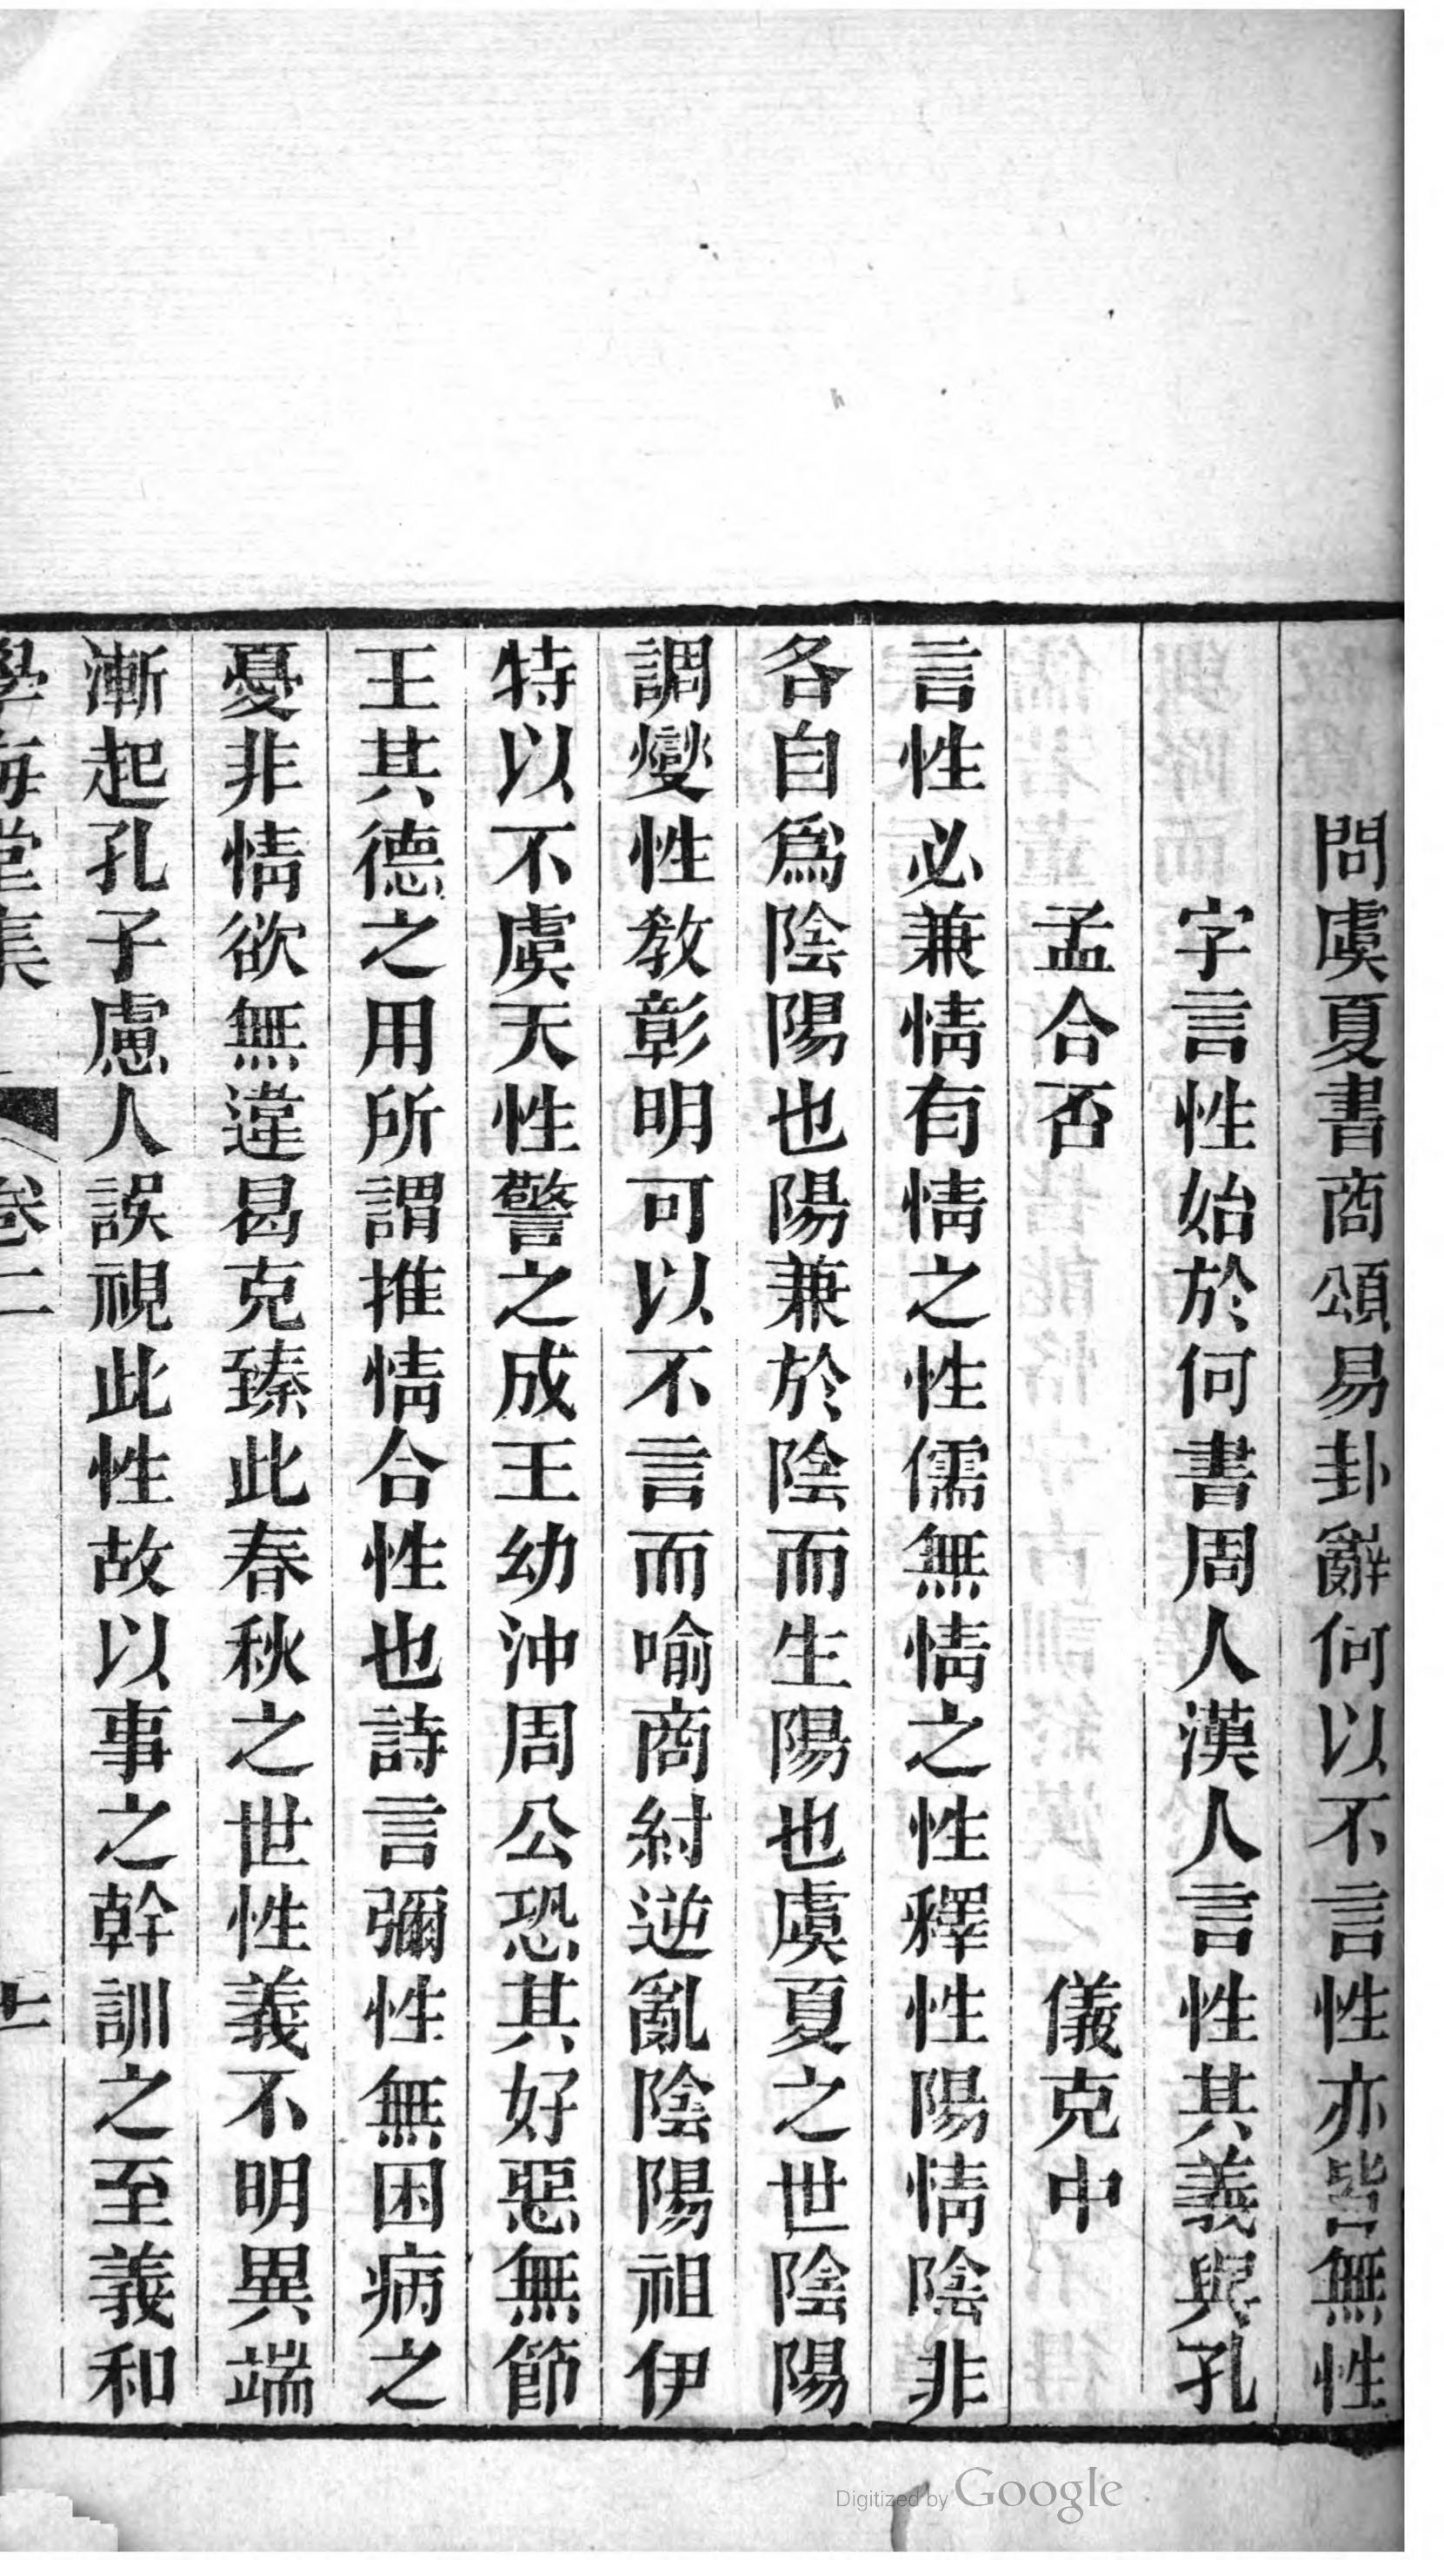 問虞夏書商頌易卦辭何以不言性亦皆無性
字言性始於何書周人漢人言性其義與孔
孟合否　儀克中
言性必兼情有情之性儒無情之性釋性陽情陰非
各自爲陰陽也陽兼於陰而生陽也虞夏之世陰陽
調燮性教彰明可以不言而喻商紂逆亂陰陽祖伊
特以不虞天性警之成王幼沖周公恐其好惡無節
王其德之用所謂推情合性也詩言彌性無困病之
憂非情欲無違曷克臻此春秋之世性義不明異端
漸起孔子慮人誤視此性故以事之幹訓之至義和
學海堂集　卷二　十
Digitized by Google